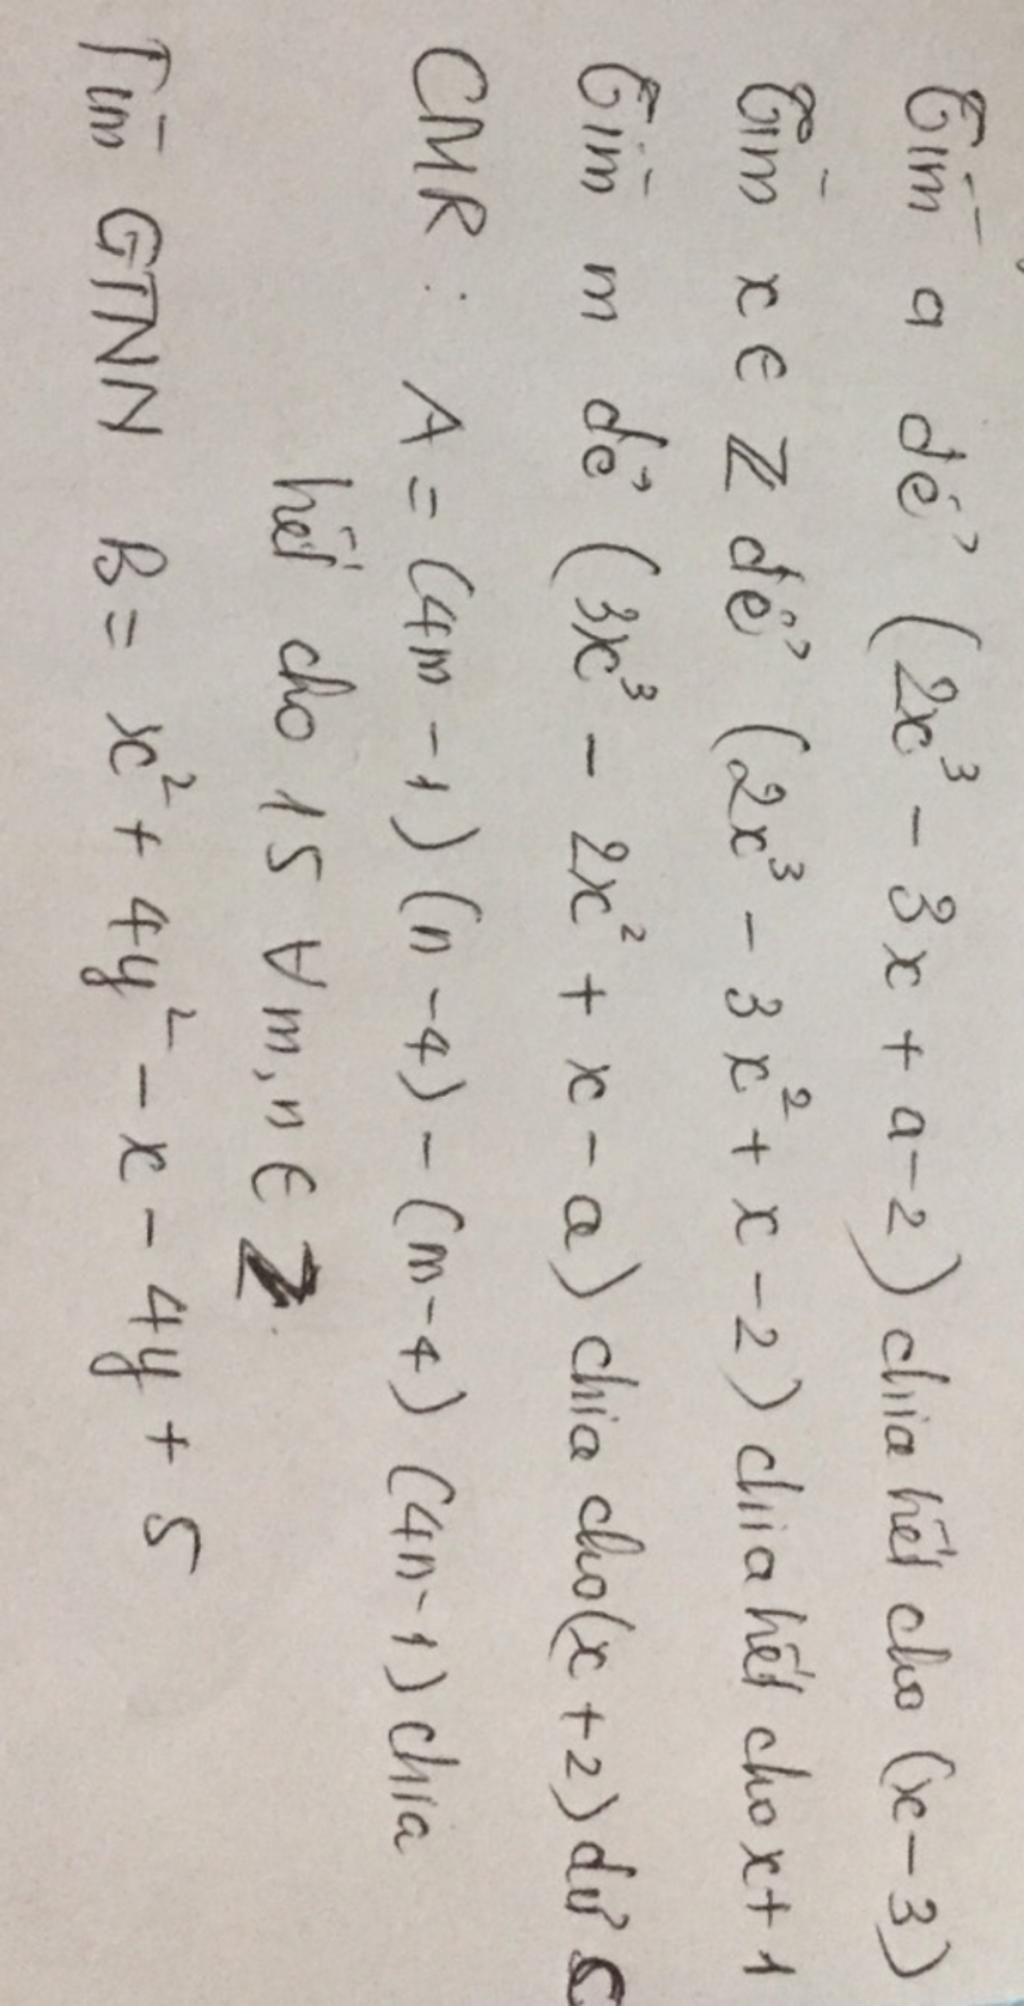 Tìm a để (2x³ - 3x + a - 2) chia hết cho (x - 3)
Tìm x ∈ Z để (2x³ - 3x² + x - 2) chia hết cho x + 1
Tìm m để (3x³ - 2x² + x - a) chia cho (x + 2) dư 5
CMR : A = (4m - 1) (n - 4) - (m - 4) (4n - 1) chia
hết cho 15 ∀ m, n ∈ Z.
Tìm GTNN B = x² + 4y² - x - 4y + 5